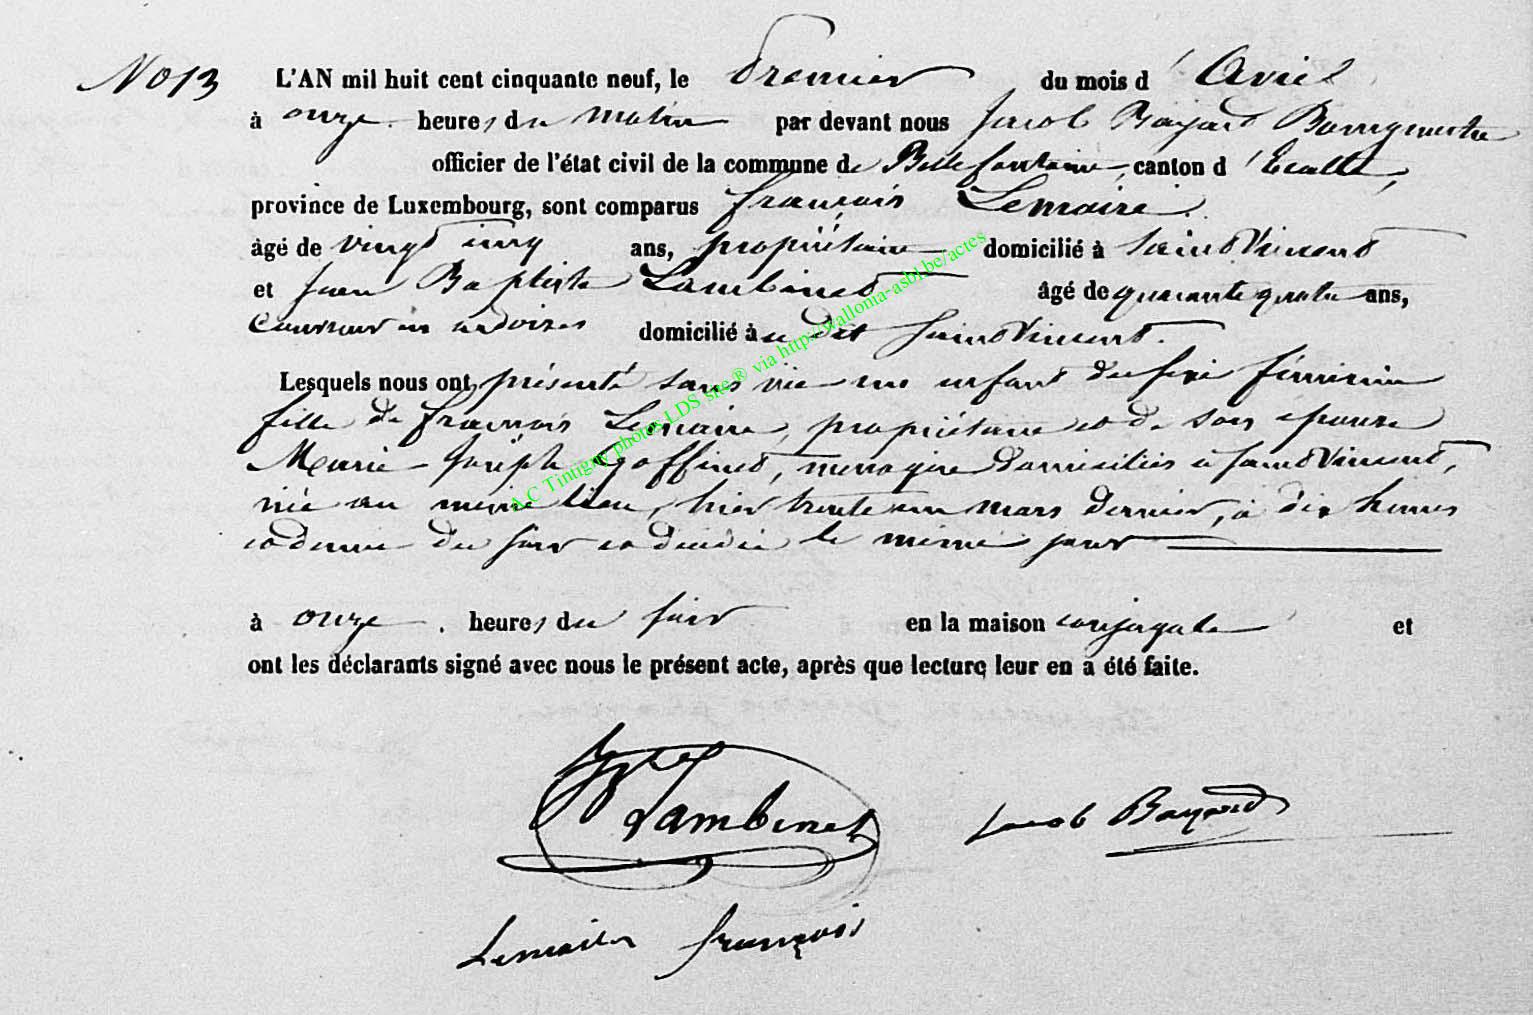 No 13 L'AN mil huit cent cinquante neuf, le premier du mois d'Avril
à onze heures du matin par devant nous Jacob Bayard Bourgmestre
officier de l'état civil de la commune de Bellefontaine, canton d'Etalle,
province de Luxembourg, sont comparus françois Lemaire
âgé de vingt cinq ans, propriétaire domicilié à Saint Vincent
et Jean Baptiste Lambinet âgé de quarante quatre ans,
Couvreur en ardoises domicilié à u dit Saint Vincent.
Lesquels nous ont présenté sans vie un enfant du sexe féminin
fille de françois Lemaire, propriétaire et de son épouse
Marie Joseph Goffinet, menagère domiciliés à Saint Vincent,
née au même lieu, hier trente un mars dernier, à dix heures
et demie du soir et décédée le même jour
à onze heures du soir en la maison conjugale et
ont les déclarants signé avec nous le présent acte, après que lecture leur en a été faite.
Lambinet Jacob Bayard
Lemaire françois
A.C Tintigny photos LDS site ® via http://wallonia-asbl.be/actes